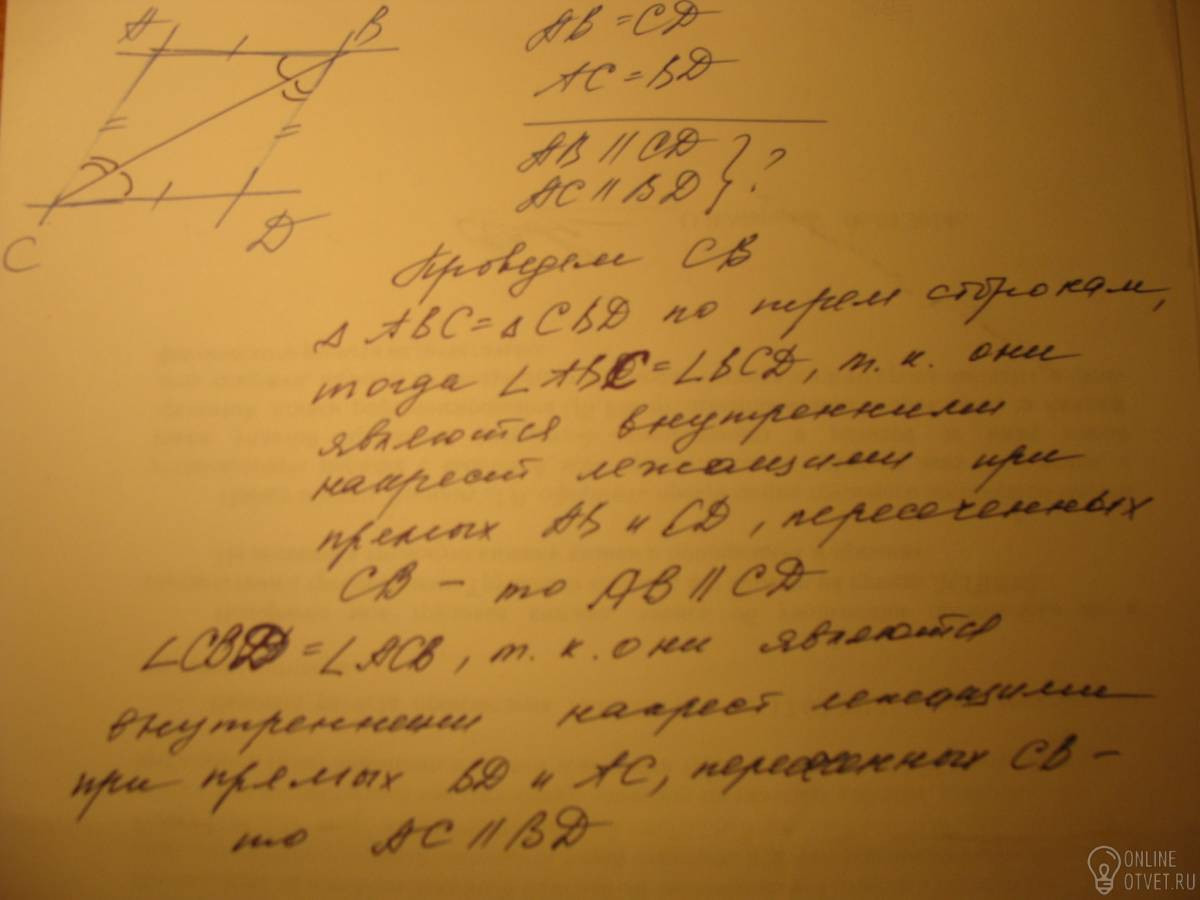 A B
C D
AB = CD
AC = BD
AB || CD } ?
AC || BD
Проведем CB
Δ ABC = Δ CBD по трем сторонам,
тогда ∠ ABC = ∠ BCD, т. к. они
являются внутренними
накрест лежащими при
прямых AB и CD, пересеченных
CB – то AB || CD
∠ CBD = ∠ ACB, т. к. они являются
внутренними накрест лежащими
при прямых BD и AC, пересеченных CB –
то AC || BD
ONLINE
OTVET.RU